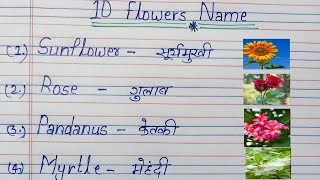 10 Flowers Name
(1.) Sunflower - सूर्यमुखी
(2.) Rose - गुलाब
(3.) Pandanus - केतकी
(4.) Myrtle - मेहंदी